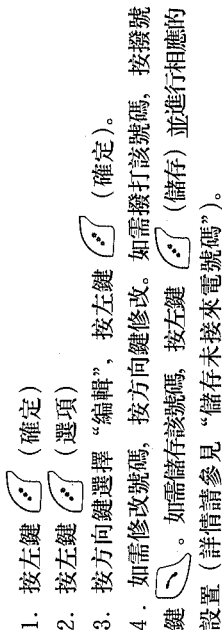 1. 按左鍵 (確定)
2. 按左鍵 (選項)
3. 按方向鍵選擇“編輯”，按左鍵 (確定)。
4. 如需修改號碼，按方向鍵修改。如需撥打該號碼，按撥號
鍵 。如需儲存該號碼，按左鍵 (儲存) 並進行相應的
設置（詳情請參見“儲存未接來電號碼”）。